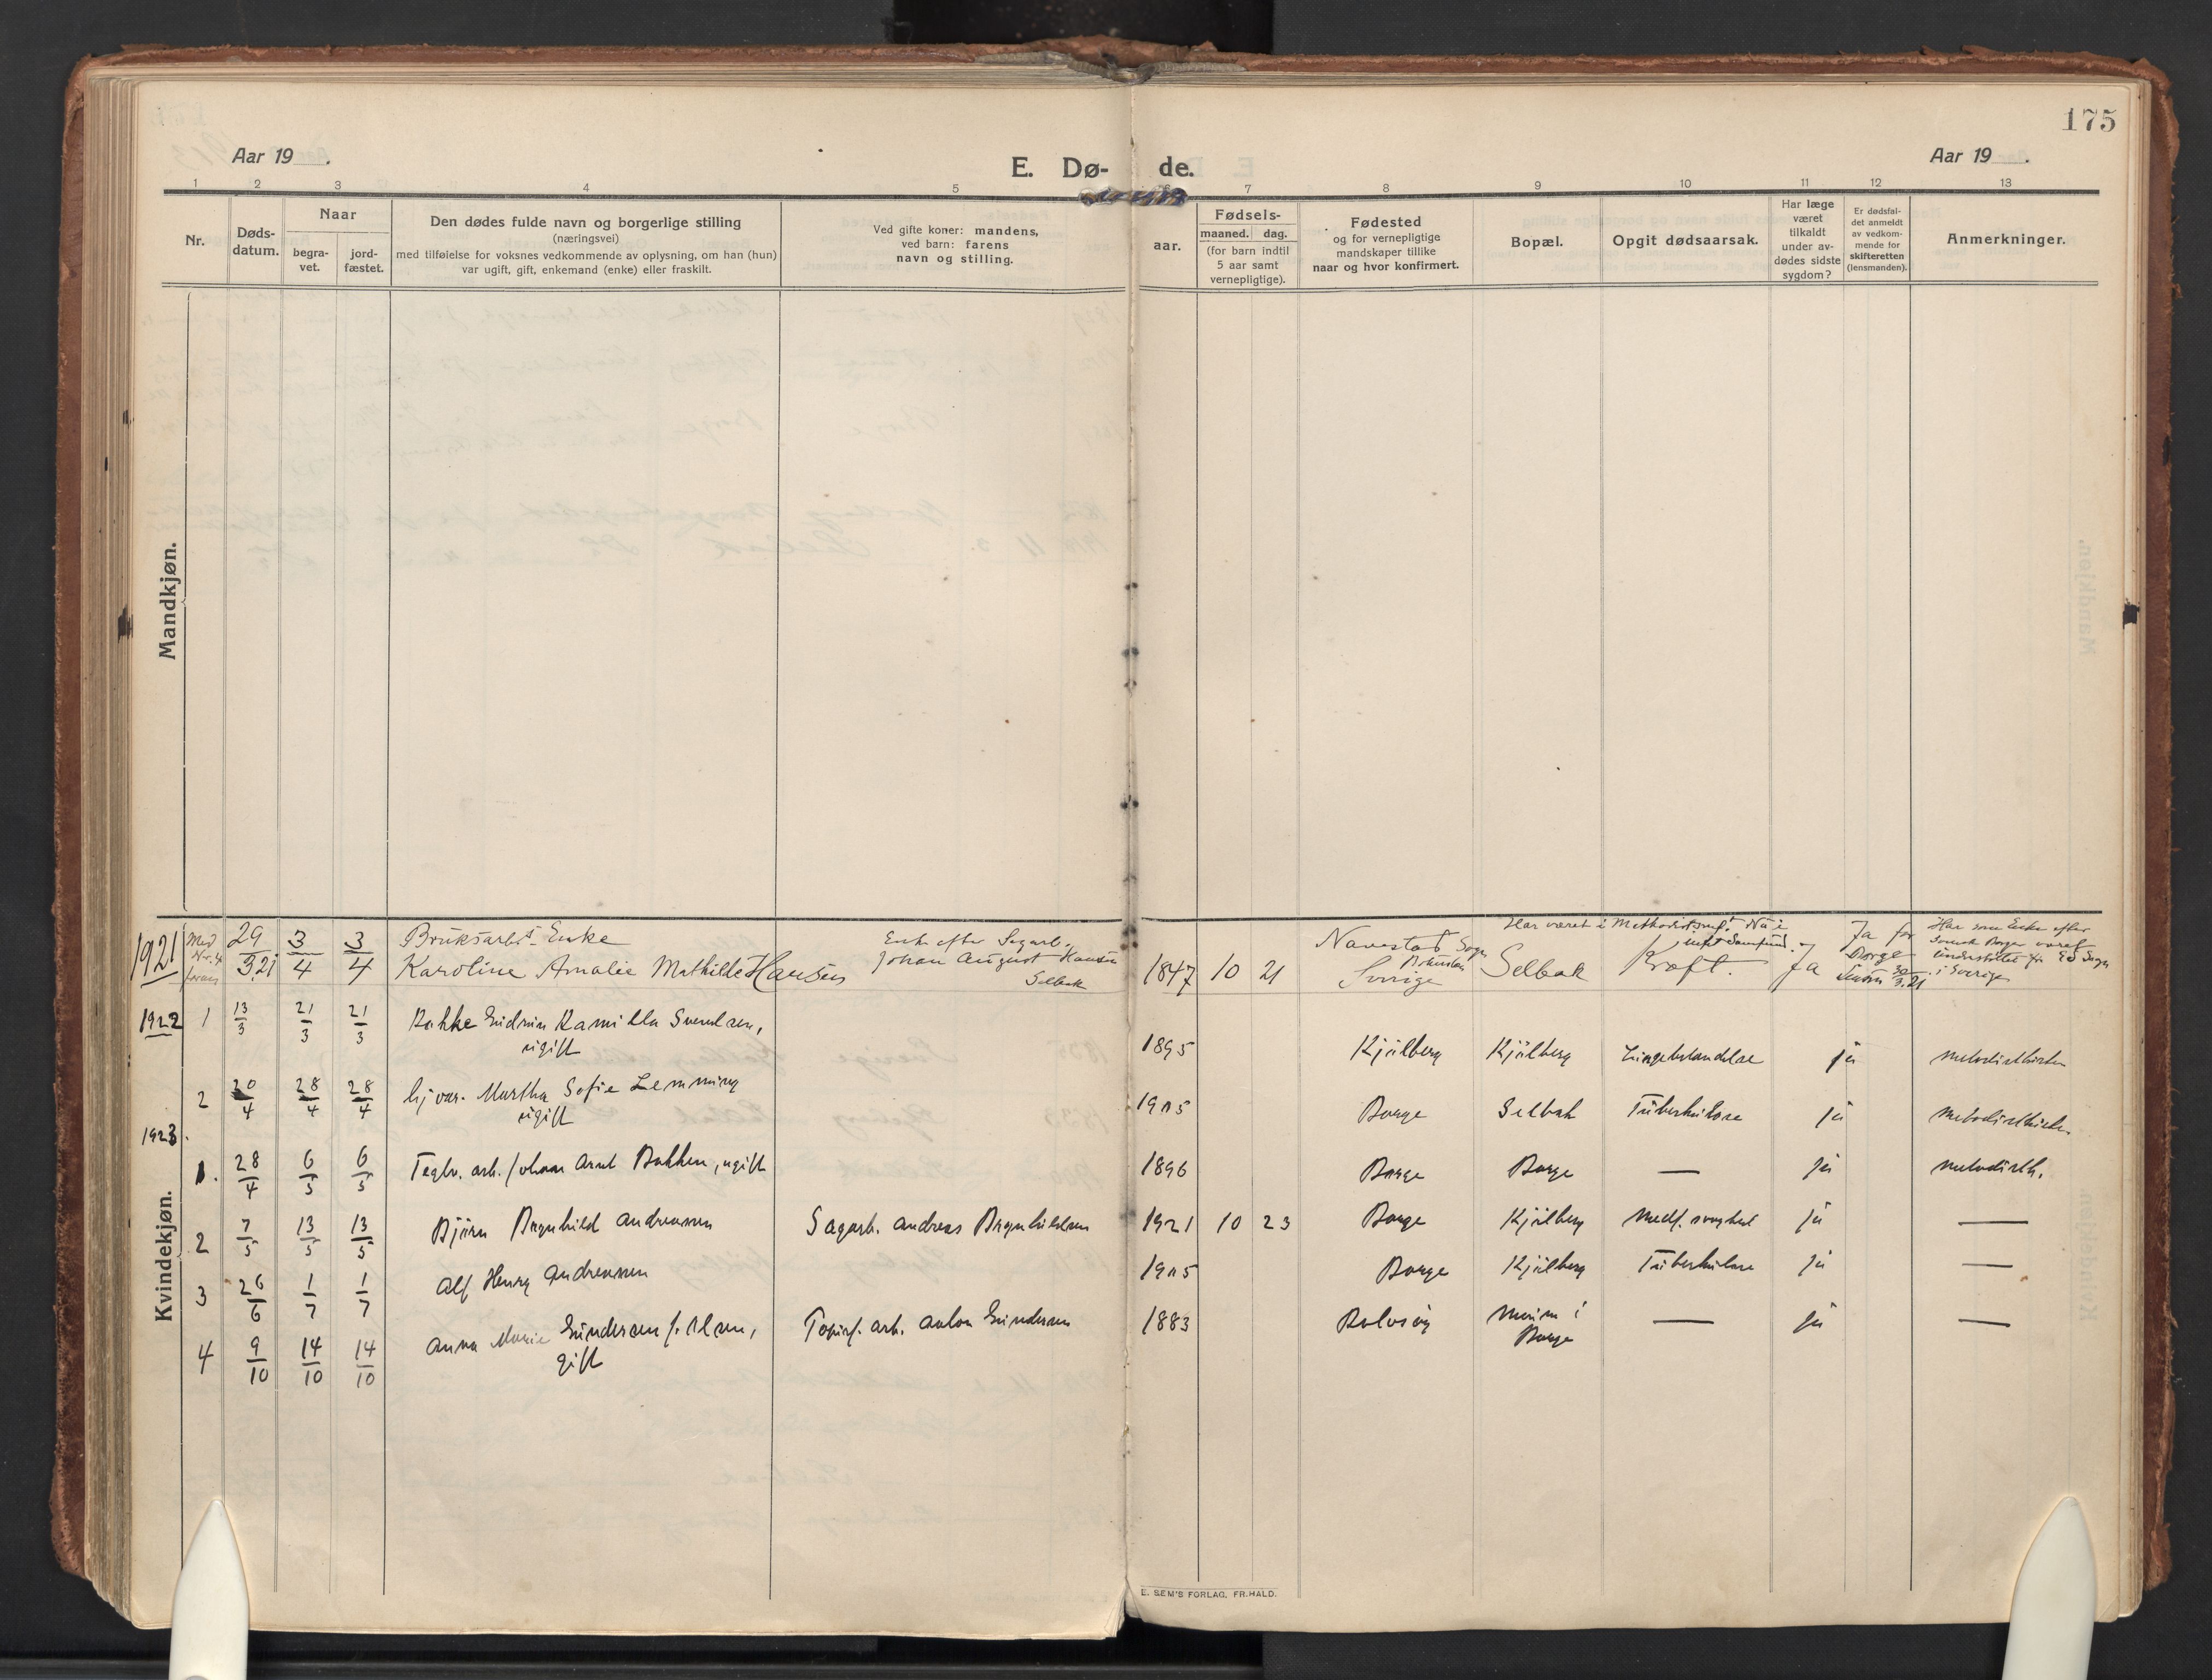 175
Aar 19 .
E. Dø- de.
Aar 19 .
1 2 3 4 5 6 7 8 9 10 11 12 13
Nr.
Døds-
datum.
Naar
begra-
vet.
jord-
fæstet.
Den dødes fulde navn og borgerlige stilling
(næringsvei)
med tilføielse for voksnes vedkommende av oplysning, om han (hun)
var ugift, gift, enkemand (enke) eller fraskilt.
Ved gifte koner: mandens,
ved barn: farens
navn og stilling.
aar.
Fødsels-
maaned. dag.
(for barn indtil
5 aar samt
vernepligtige).
Fødested
og for vernepligtige
mandskaper tillike
naar og hvor konfirmert.
Bopæl.
Opgit dødsaarsak.
Har læge
været
tilkaldt
under av-
dødes sidste
sygdom?
Er dødsfal-
det anmeldt
av vedkom-
mende for
skifteretten
(lensmanden).
Anmerkninger.
Mandkjøn.
Kvindekjøn.
1921 Med Nr. 4 29/3 21 3/4 3/4 Bruksarb.s Enke
Karoline Amalie Mathilde Hansen
Enke efter Sagarb.
Johan August Hansen
Selbak
1847 10 21
Navestad Sogn
Sverige
Selbak
Har været i Methodistsmf. Nå i
Kræft.
Ja
Ja for
Borge
30/3.21
Har som Enke efter
Svensk Borger været
understøttet fra Ed Sogn
i Sverige
1922 1 13/3 21/3 21/3 Bakke Gudrun Kamilla Svendsen,
ugift
1895 Kjølberg Kjølberg Lungebetændelse ja Metodistkirken
2 20/4 28/4 28/4 Hj var. Martha Sofie Lemming
ugift
1905 Borge Selbak Tuberkulose ja Metodistkirken
1923.
1. 28/4 6/5 6/5 Teglv. arb. Johan Arnt Bakken, ugift
1896 Borge Borge — ja Metodistk.
2 7/5 13/5 13/5 Bjørn Ragnhild Andreassen Sagarb. Andreas Ragnhildsen
1921 10 23 Borge Kjølberg Medf. svaghed ja —
3 26/6 1/7 1/7 Alf Henry Andreassen
1905 Borge Kjølberg Tuberkulose ja —
4 9/10 14/10 14/10 Anna Marie Gundersen f. Olsen,
gift
arb. Anton Gundersen
1883 Rolvsøy Moum i
Borge
— ja —
E. SEM'S FORLAG, FR.HALD.